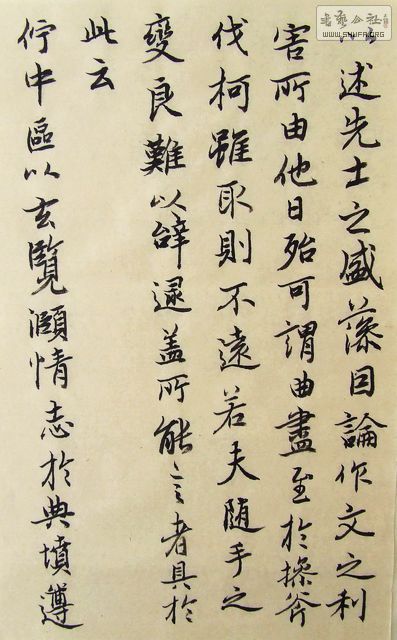 述先士之盛藻因論作文之利
害所由他日殆可謂曲盡至於操斧
伐柯雖取則不遠若夫随手之
變良難以辭逮盖所能言者具於
此云
佇中區以玄覽頤情志於典墳遵
書藝公社
WWW.SHUFA.ORG